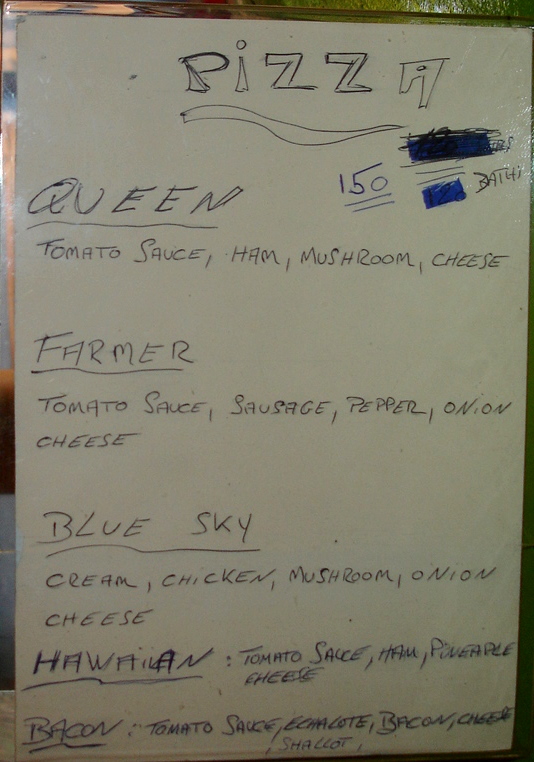 PiZZA
150 120 BATHS
QUEEN
TOMATO SAUCE, HAM, MUSHROOM, CHEESE
FARMER
TOMATO SAUCE, SAUSAGE, PEPPER, ONION
CHEESE
BLUE SKY
CREAM, CHICKEN, MUSHROOM, ONION
CHEESE
HAWAIIAN : TOMATO SAUCE, HAM, PINEAPLE
CHEESE
BACON : TOMATO SAUCE, ECHALOTE, BACON, CHEESE
, SHALLOT,